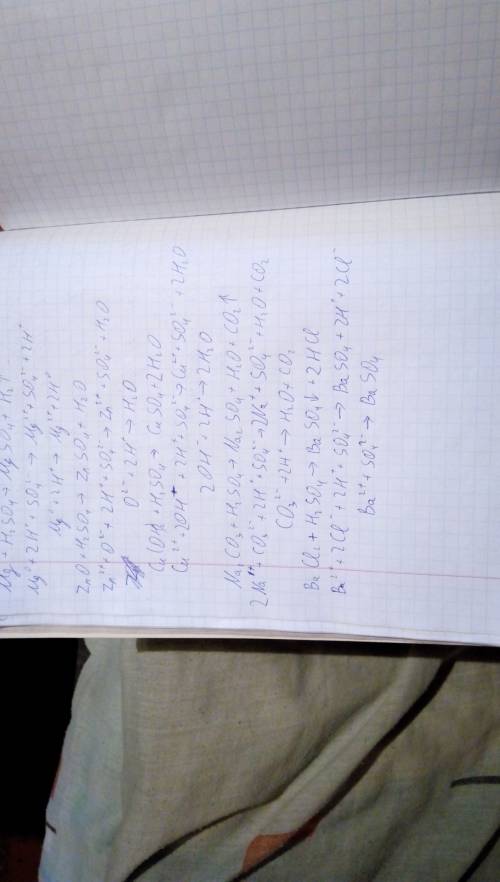 Mg + H₂SO₄ → MgSO₄ + H₂↑
Mg + 2H⁺ + SO₄²⁻ → Mg²⁺ + SO₄²⁻ + 2H⁰
Mg + 2H⁺ → Mg²⁺ + 2H⁰
ZnO + H₂SO₄ → ZnSO₄ + H₂O
Zn²⁺ + O²⁻ + 2H⁺ + SO₄²⁻ → Zn²⁺ + SO₄²⁻ + H₂O
O²⁻ + 2H⁺ → H₂O
Cu(OH)₂ + H₂SO₄ → CuSO₄ + 2H₂O
Cu²⁺ + 2OH⁻ + 2H⁺ + SO₄²⁻ → Cu²⁺ + SO₄²⁻ + 2H₂O
2OH⁻ + 2H⁺ → 2H₂O
Na₂CO₃ + H₂SO₄ → Na₂SO₄ + H₂O + CO₂↑
2Na⁺ + CO₃²⁻ + 2H⁺ + SO₄²⁻ → 2Na⁺ + SO₄²⁻ + H₂O + CO₂
CO₃²⁻ + 2H⁺ → H₂O + CO₂
BaCl₂ + H₂SO₄ → BaSO₄↓ + 2HCl
Ba²⁺ + 2Cl⁻ + 2H⁺ + SO₄²⁻ → BaSO₄ + 2H⁺ + 2Cl⁻
Ba²⁺ + SO₄²⁻ → BaSO₄